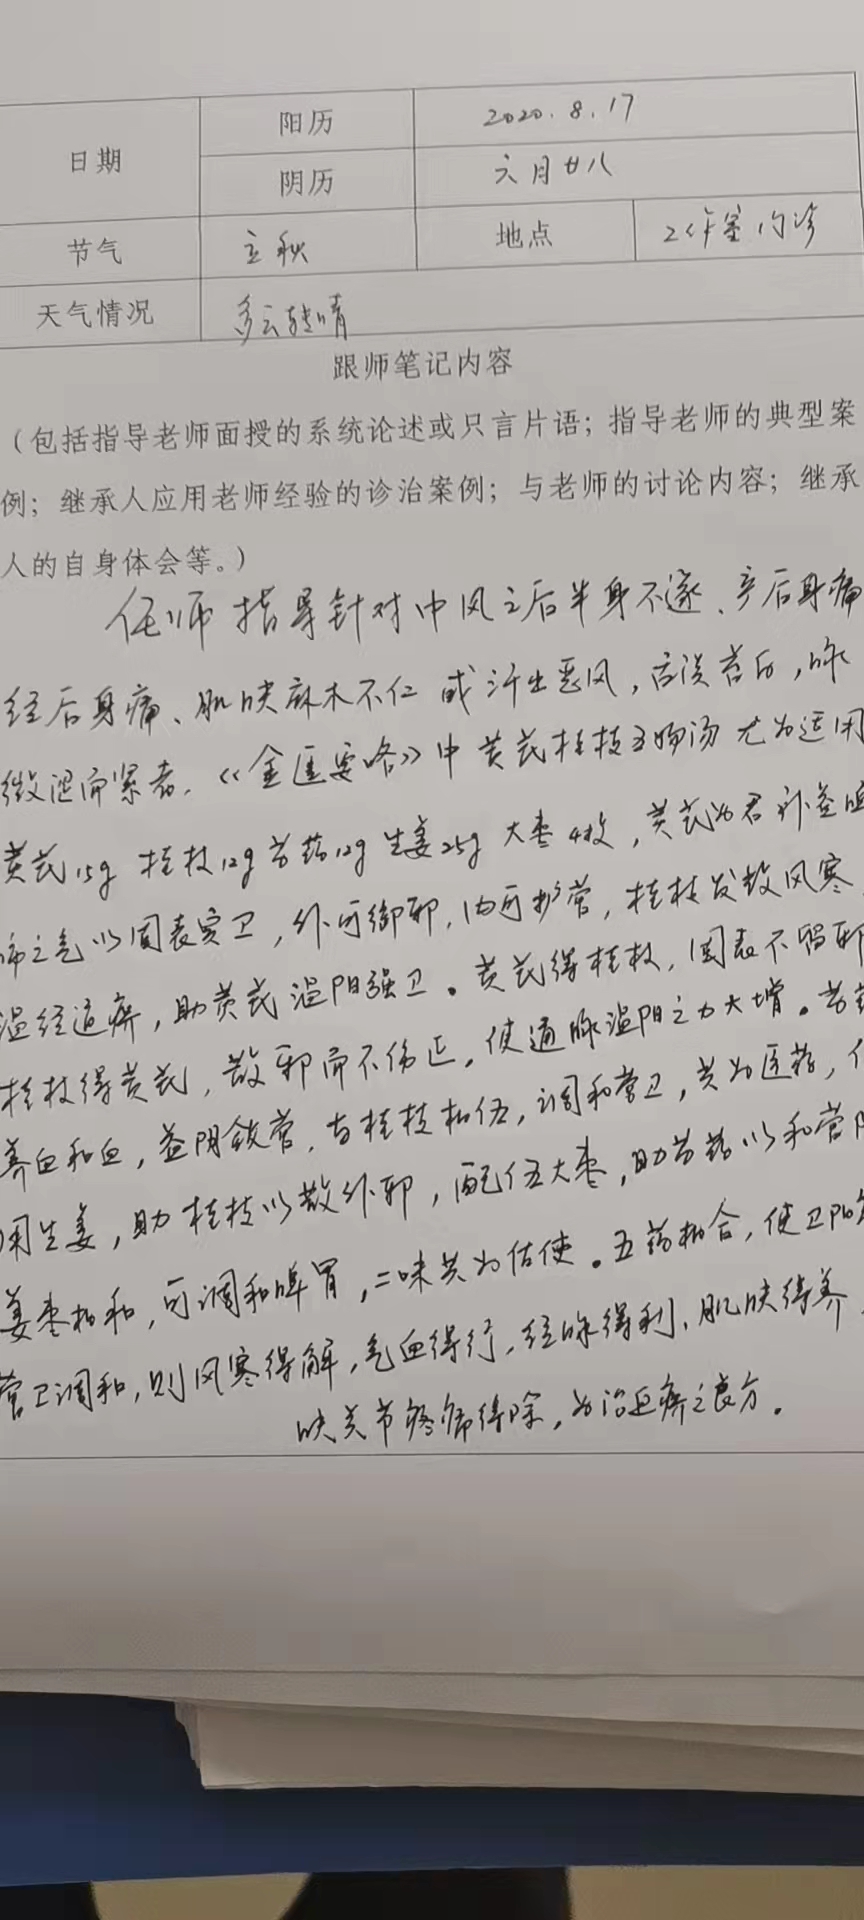 日期 阳历 2020.8.17
阴历 六月廿八
节气 立秋 地点 工作室门诊
天气情况 多云转晴
跟师笔记内容
（包括指导老师面授的系统论述或只言片语；指导老师的典型案
例；继承人应用老师经验的诊治案例；与老师的讨论内容；继承
人的自身体会等。）
任师指导针对中风之后半身不遂、产后身痛
经后身痛、肌肤麻木不仁或汗出恶风，舌淡苔白，脉
微涩而紧者，《金匮要略》中黄芪桂枝五物汤尤为适用
黄芪15g 桂枝12g 芍药12g 生姜25g 大枣4枚，黄芪为君补益脾
肺之气以固表实卫，外可御邪，内可护营，桂枝发散风寒
温经通痹，助黄芪温阳强卫。黄芪得桂枝，固表不留邪
桂枝得黄芪，散邪而不伤正，使通脉温阳之力大增。芍药
养血和血，益阴敛营，与桂枝相伍，调和营卫，共为臣药，
用生姜，助桂枝以散外邪，配伍大枣，助芍药以和营阴
姜枣相和，可调和脾胃，二味共为佐使。五药相合，使卫阳
营卫调和，则风寒得解，气血得行，经脉得利，肌肤得养，
肤关节疼痛得除，为治血痹之良方。